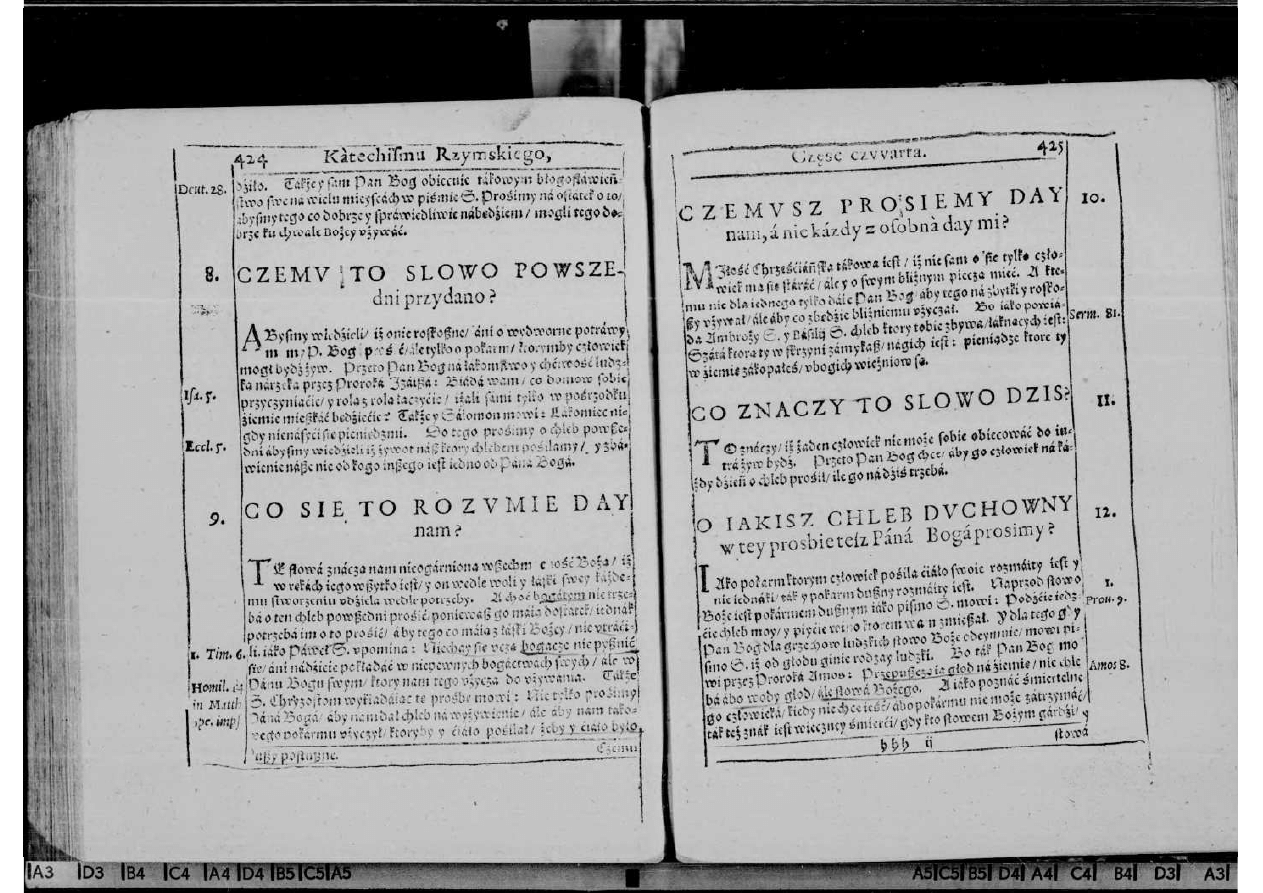 424 Kàtechiſmu Rzymskiego,
Deut. 28.
dźiło. Tákżey ſam Pan Bog obiecuie tákowym błogoſłáwień-
ſtwo ſwe ná wielu mieyſcách w piśmie S. Prośimy ná oſtátek o to/
ábyſmy tego co dobrze y ſpráwiedliwie nábędźiem / mogli tego do-
brze ku chwale Bożey vżywáć.
8. CZEMV TO SLOWO POWSZE-
dni przydano?
AByſmy wiedźieli/ iż o nie roſkoßne/ áni o wydworne potráwy
P. Bog proś ć/ ále tylko o pokarm/ ktorymby człowiek
mogł bydź żyw. Przeto Pan Bog ná łákomſtwo y chćiwość ludz-
ka nárzeka przez Proroká Izáiaßá: Biádá wam/ co domow ſobie
Iſa. 5.
przyczyniaćie/ y rola z rola łączyćie / iżali ſámi tylko w pośrzodku
źiemie mießkáć będźiećie? Tákżey Sálomon mowi: Łákomiec ni-
gdy nienáſyći ſię pieniędzmi. Do tego prośimy o chleb powße-
Eccl. 5.
dni ábyſmy wiedźieli iż żywot náß ktory chlebem pośilamy/ y zbá-
wienie náße nie od kogo inßego ieſt iedno od Páná Bogá.
9. CO SIĘ TO ROZVMIE DAY
nam?
TE ſłowá znácza nam nieogárniona wßechm c ność Boża/ iż
w rękách iego wßytko ieſt/ y on wedle woli y łáſki ſwey káżde-
mu ſtworzeniu vdźiela wedle potrzeby. A choć bogátym nie trze-
bá o ten chleb powßedni prośić/ ponieważ go máia doſtátek/ iednák
potrzebá im o to prośić/ áby tego co máia z łáſki Bożey / nie vtráći-
1. Tim. 6.
li. iáko Páweł S. vpomina: Niechay ſię vcza bogácze nie pyßnić
ſię/ áni nádźieie pokłádáć w niepewnych bogáctwách ſwych/ ále w
Pánu Bogu ſwym/ ktory nam tego vżycza do vżywánia. Tákże
Homil. 14
in Matth
ope. impſ
S. Chryzoſtom wykłádáiac tę prośbę mowi: Nie tylko prośimy
Páná Bogá/ áby nam dał chleb ná wyżywienie/ ále áby nam táko-
wego pokármu vżyczył/ ktoryby y ćiáło pośilał/ żeby y ćiáło było
dußy poſłußne. Czemu
Część czvvarta. 425
CZEMVSZ PROSIEMY DAY 10.
nam, á nie kázdy = oſobnà day mi?
MIłość Chrześćiáńſka tákowa ieſt/ iż nie ſam o ſię tylko czło-
wiek ma ſię ſtáráć/ ále y o ſwym bliźnym piecza mieć. A kte-
mu nie dla iednego tylko dáie Pan Bog áby tego ná zbytki y roſko-
ßy vżywał/ ále áby co zbędźie bliźniemu vżyczał. Bo iáko powia-
Serm. 81.
da Ambroży S. y Báſiliy S. chleb ktory tobie zbywa/ łáknacych ieſt:
Szátá ktora ty w ſkrzyni zámykaß/ nágich ieſt: pieniadze ktore ty
w źiemie zákopałeś/ vbogich więźniow ſa.
CO ZNACZY TO SLOWO DZIS? 11.
TO znáczy/ iż żaden człowiek nie może ſobie obiecowáć do iu-
trá żyw bydź. Przeto Pan Bog chce/ áby go człowiek ná ká-
żdy dźień o chleb prośił/ ile go ná dźiś trzebá.
O IAKISZ CHLEB DVCHOWNY 12.
w tey prosbie teſz Páná Bogá prosimy?
IAko pokarm ktorym człowiek pośila ćiáło ſwoie rozmáity ieſt y
nie iednáki/ ták y pokarm dußny rozmáity ieſt. Naprzod ſłowo 1.
Boże ieſt pokármem dußnym iáko piſmo S. mowi: Podźćie iedz-
Prou. 9.
ćie chleb moy/ y piyćie wino ktorem wa n zmießał. Y dla tego gdy
Pan Bog dla grzechow ludzkich ſłowo Boże odeymuie/ mowi pi-
ſmo S. iż od głodu ginie rodzay ludzki. Bo ták Pan Bog mo
wi przez Proroká Amos: Przepußczę ia głod ná źiemię/ nie chle
Amos 8.
bá ábo wody głod/ ále ſłowá Bożego. A iáko poznáć śmiertelne
go człowieká/ kiedy nie chce ieść/ ábo pokármu nie może zátrzymáć/
ták też znák ieſt wieczney śmierći/ gdy kto ſłowem Bożym gárdźi/ y
hhh ij ſłowá
A3 D3 B4 C4 A4 D4 B5 C5 A5
A5 C5 B5 D4 A4 C4 B4 D3 A3